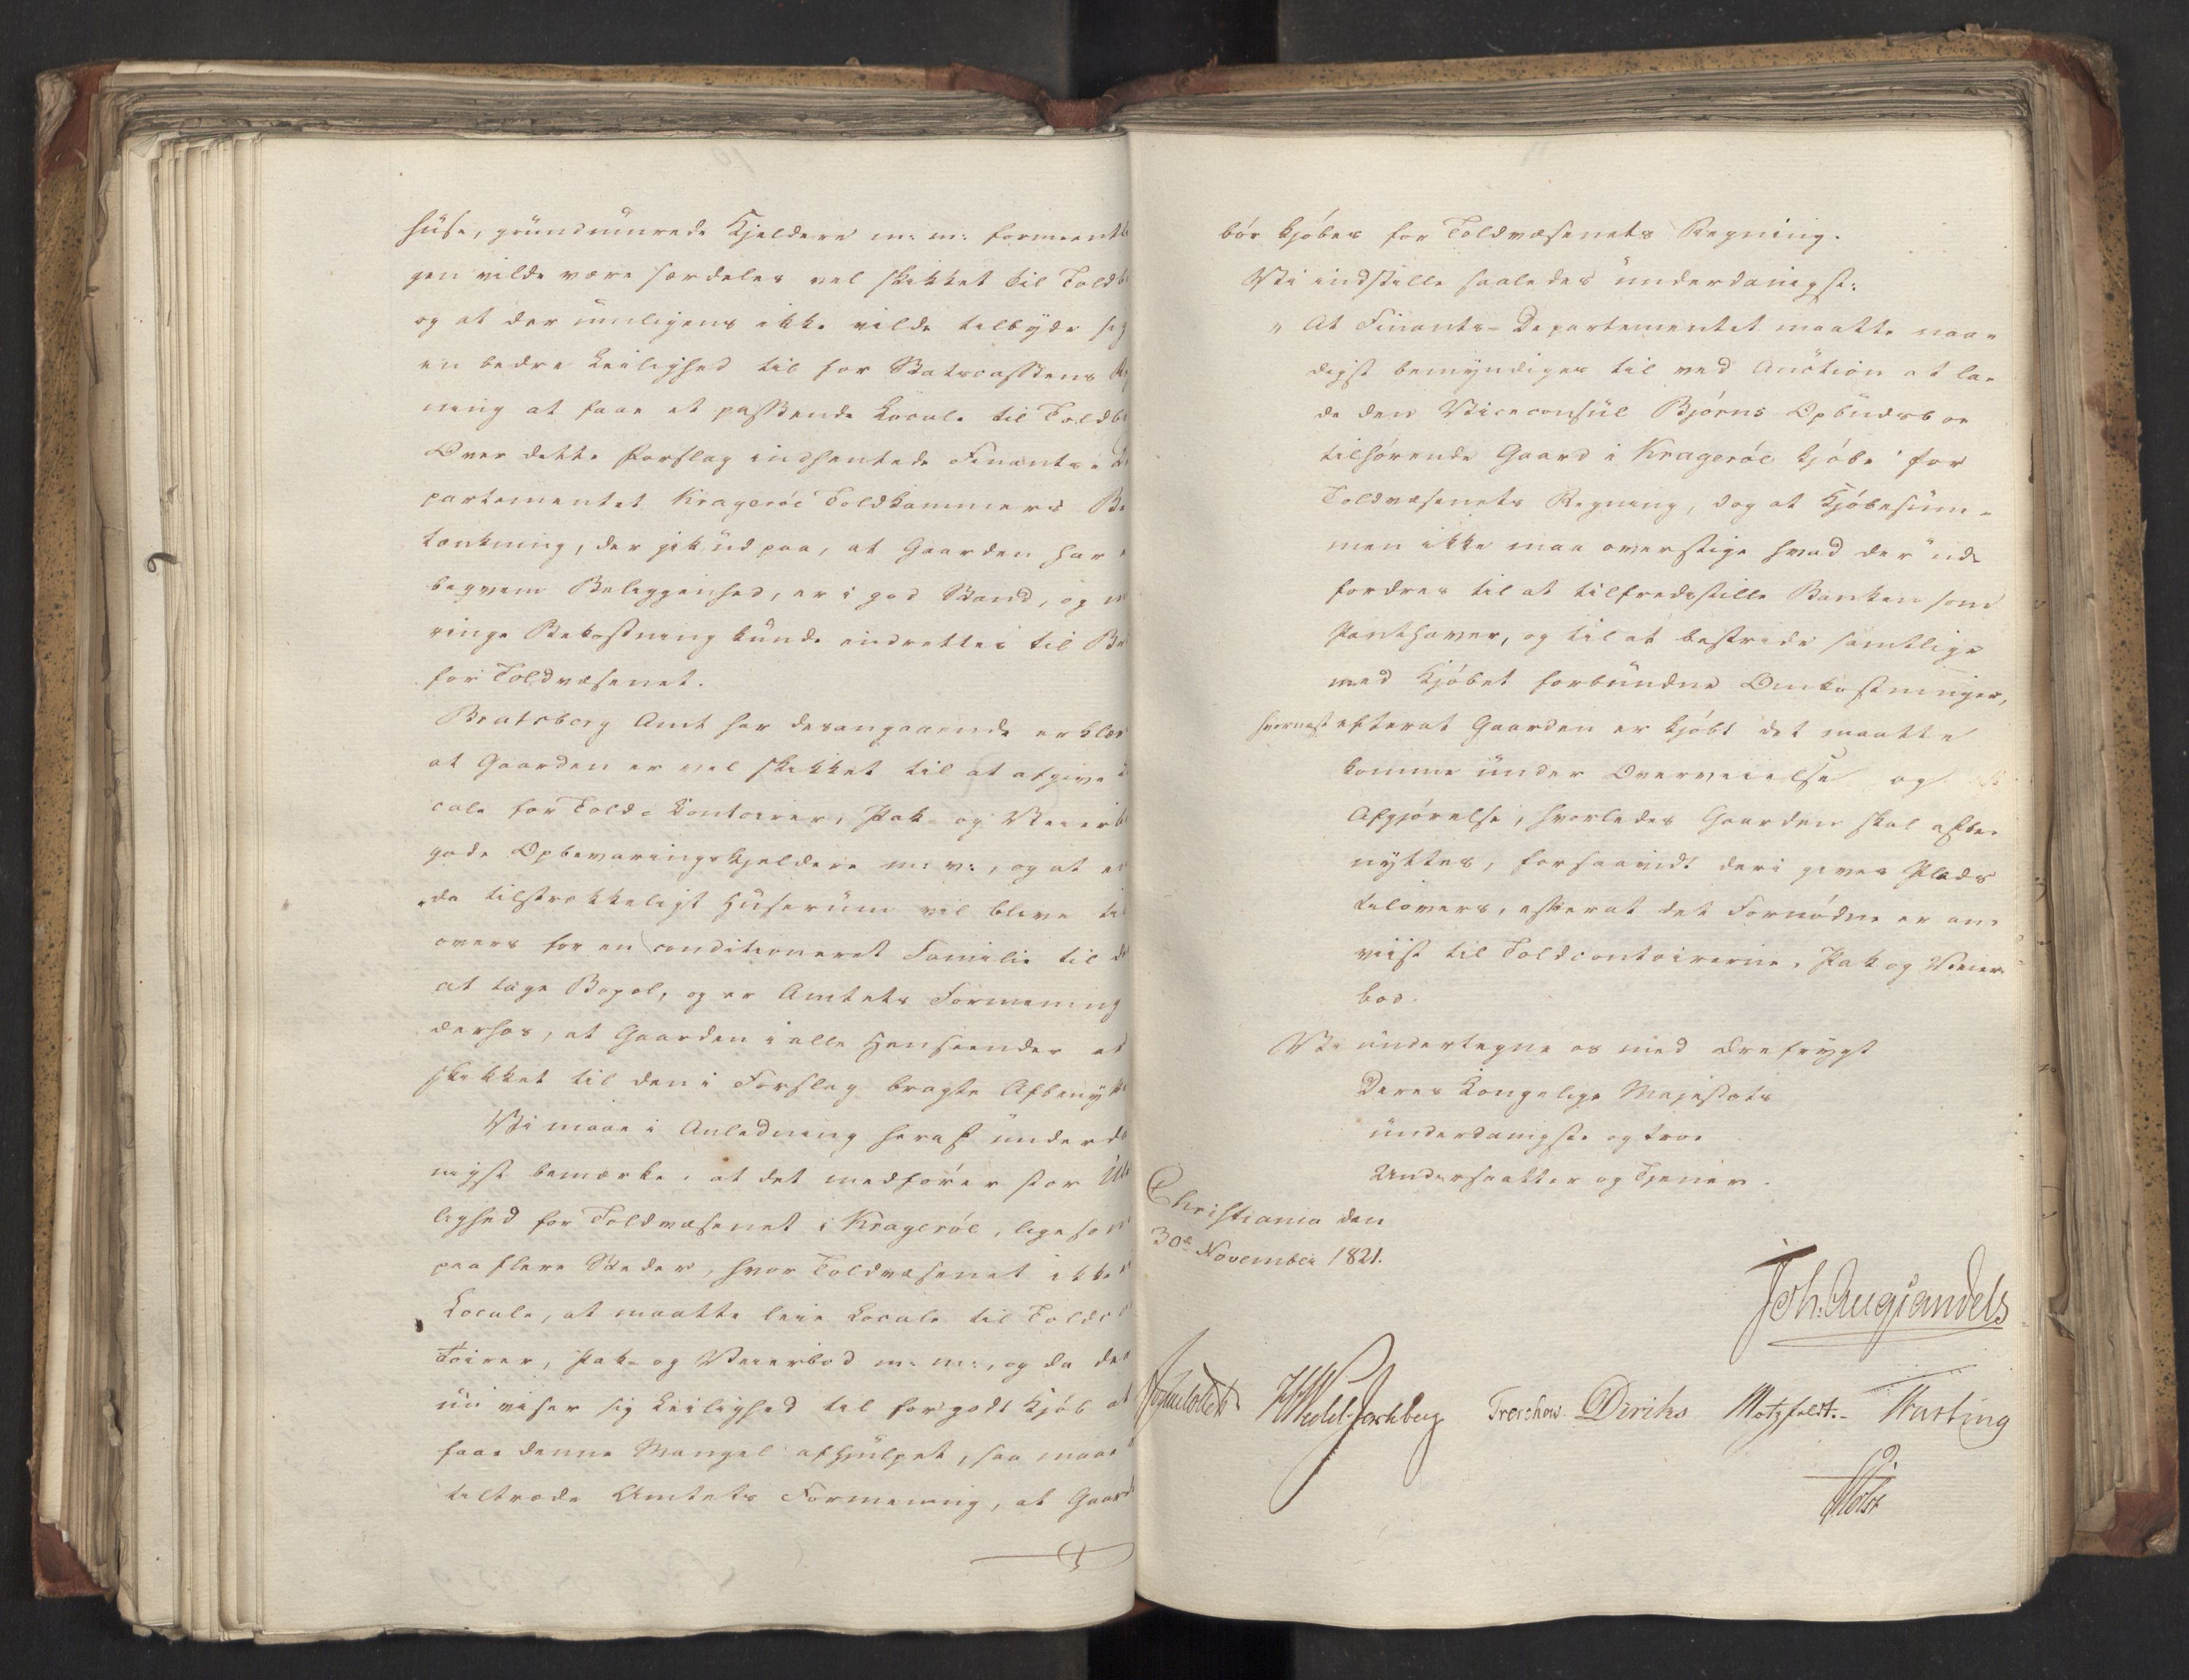 huse, grundmurede Kjeldere m: m: formeent
gen vilde være særdeles vel skikket til Toldb
og at der muligens ikke vilde tilbyde sig
en bedre Leilighed til for Statscassens
ning at faae et passende Locale til Toldb
Over dette Forslag indhentede Finants-De
partementet Kragerøe Toldkammers Be
tænkning, der gik ud paa, at Gaarden har
beqvem Beliggenhed, er i god Stand, og
ringe Bekostning kunde indrettes til
for Toldvæsenet.
Bratsberg Amt har desangaaende erklær
at Gaarden er vel skikket til at afgive
cale for Told-Contoirer, Pak- og Veierb
gode Opbevaringskjeldere m: v:, og at
da tilstrækkeligt Huserum vil blive til
overs for en conditioneret Familie til
at tage Bopæl, og er Amtets Formening
derhos, at Gaarden i alle Henseender er
skikket til den i Forslag bragte Afbenytt
Vi maae i Anledning heraf underda
nigst bemærke, at det medfører stor
lighed for Toldvæsenet i Kragerøe, ligesom
paa flere Steder, hvor Toldvæsenet ikke
Locale, at maatte leie Locale til Toldc
toirer, Pak- og Veierbod m: m:, og da der
nu viser sig Leilighed til for godt Kjøb at
faae denne Mangel afhjulpet, saa maae
tiltræde Amtets Formening, at Gaard
bør kjøbes for Toldvæsenets Regning.
Vi indstille saaledes underdanigst:
" At Finants-Departementet maatte naa-
digst bemyndiges til ved Auction at la-
de den Viceconsul Bjørns Opbudsboe
tilhørende Gaard i Kragerøe kjøbe for
Toldvæsenets Regning, dog at Kjøbesum-
men ikke maa overstige hvad der ud-
fordres til at tilfredsstille Banken som
Panthaver, og til at bestride samtlige
med Kjøbet forbundne Omkostninger,
hvornæst efterat Gaarden er kjøbt det maatte
komme under Overveielse og
Afgjørelse, hvorledes Gaarden skal afbe-
nyttes, forsaavidt deri gives Plads
tilovers, efterat det Fornødne er an-
viist til Toldcontoirerne, Pak og Veier-
bod.
Vi undertegne os med Ærefrygt
Deres Kongelige Majestæts
underdanigste og troe
Undersaatter og Tjener.
Christiania den
30te November 1821.
Joh. Aug Sandels
Sommerhielm HWedel Jarlsberg Treschow Diriks Motzfeldt.- Fasting
Holst